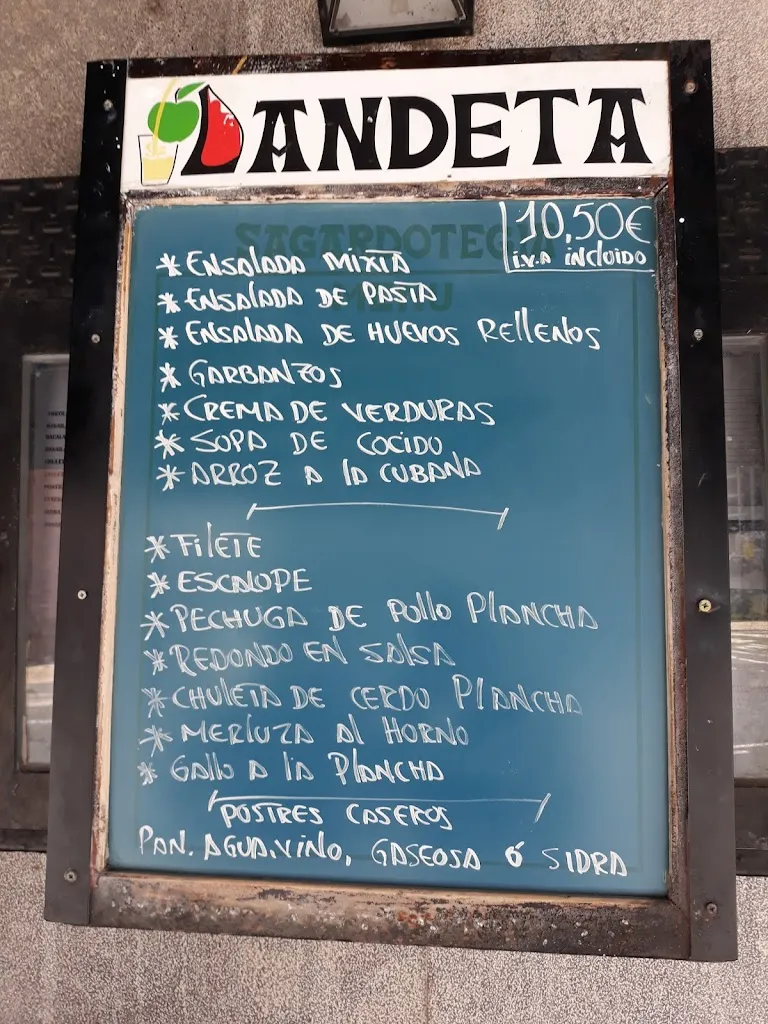 LANDETA
SAGARDOTEGIA
MENU
10,50€
I.V.A INCLUIDO
* ENSALADA MIXTA
* ENSALADA DE PASTA
* ENSALADA DE HUEVOS RELLENOS
* GARBANZOS
* CREMA DE VERDURAS
* SOPA DE COCIDO
* ARROZ A LA CUBANA
* FILETE
* ESCALOPE
* PECHUGA DE POLLO PLANCHA
* REDONDO EN SALSA
* CHULETA DE CERDO PLANCHA
* MERLUZA AL HORNO
* GALLO A LA PLANCHA
POSTRES CASEROS
PAN. AGUA. VINO, GASEOSA Ó SIDRA